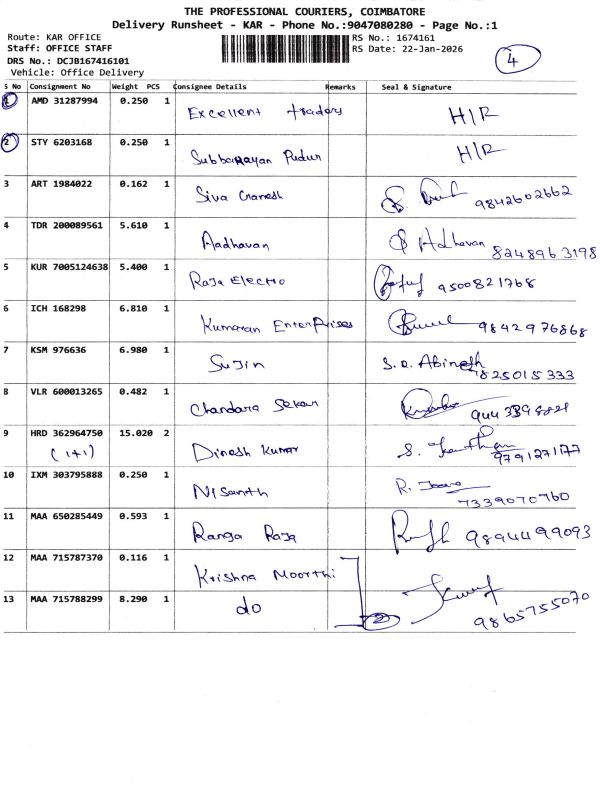 THE PROFESSIONAL COURIERS, COIMBATORE
Delivery Runsheet - KAR - Phone No.:9047080280 - Page No.:1
Route: KAR OFFICE
Staff: OFFICE STAFF
DRS No.: DCJB167416101
Vehicle: Office Delivery
RS No.: 1674161
RS Date: 22-Jan-2026
4
S No Consignment No Weight PCS Consignee Details Remarks Seal & Signature
1 AMD 31287994 0.250 1 Excellent traders H/R
2 STY 6203168 0.250 1 Subbarayan Pudur H/R
3 ART 1984022 0.162 1 Siva Ganesh 9842602662
4 TDR 200089561 5.610 1 Aadhavan Adhavan 8248963198
5 KUR 7005124638 5.400 1 Raja Electro 9500821768
6 ICH 168298 6.810 1 Kumaran Enterprises 9842976868
7 KSM 976636 6.980 1 Sujin S.R. Abinesh 9825015333
8 VLR 600013265 0.482 1 Chandara Sekar
9 HRD 362964750 15.020 2 Dinesh Kumar S. 9791271177
(1+1)
10 IXM 303795888 0.250 1 Nisanth R. 7339070760
11 MAA 650285449 0.593 1 Ranga Raja 9894499093
12 MAA 715787370 0.116 1 Krishna Moorthi
13 MAA 715788299 8.290 1 do 2 9865755070